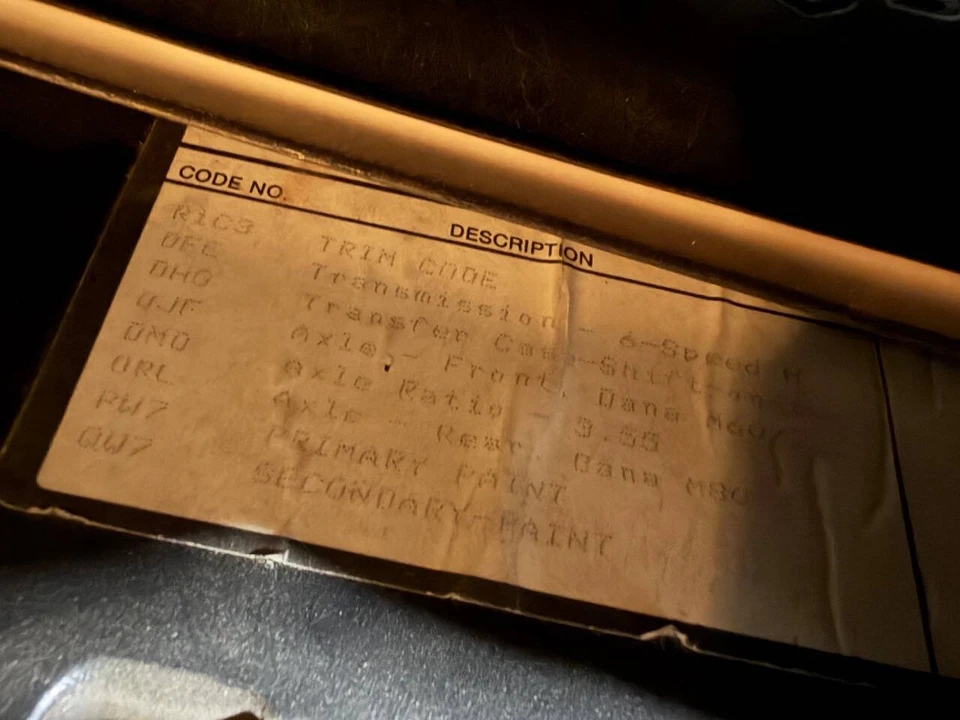 CODE NO. DESCRIPTION
R1C3 TRIM CODE
DEE Transmission - 6-Speed M
DHG Transfer Case-Shift-on
DJF Axle - Front, Dana M60/
DMD Axle Ratio - 3.55
DRL Axle - Rear, Dana M80
PW7 PRIMARY PAINT
QW7 SECONDARY-PAINT